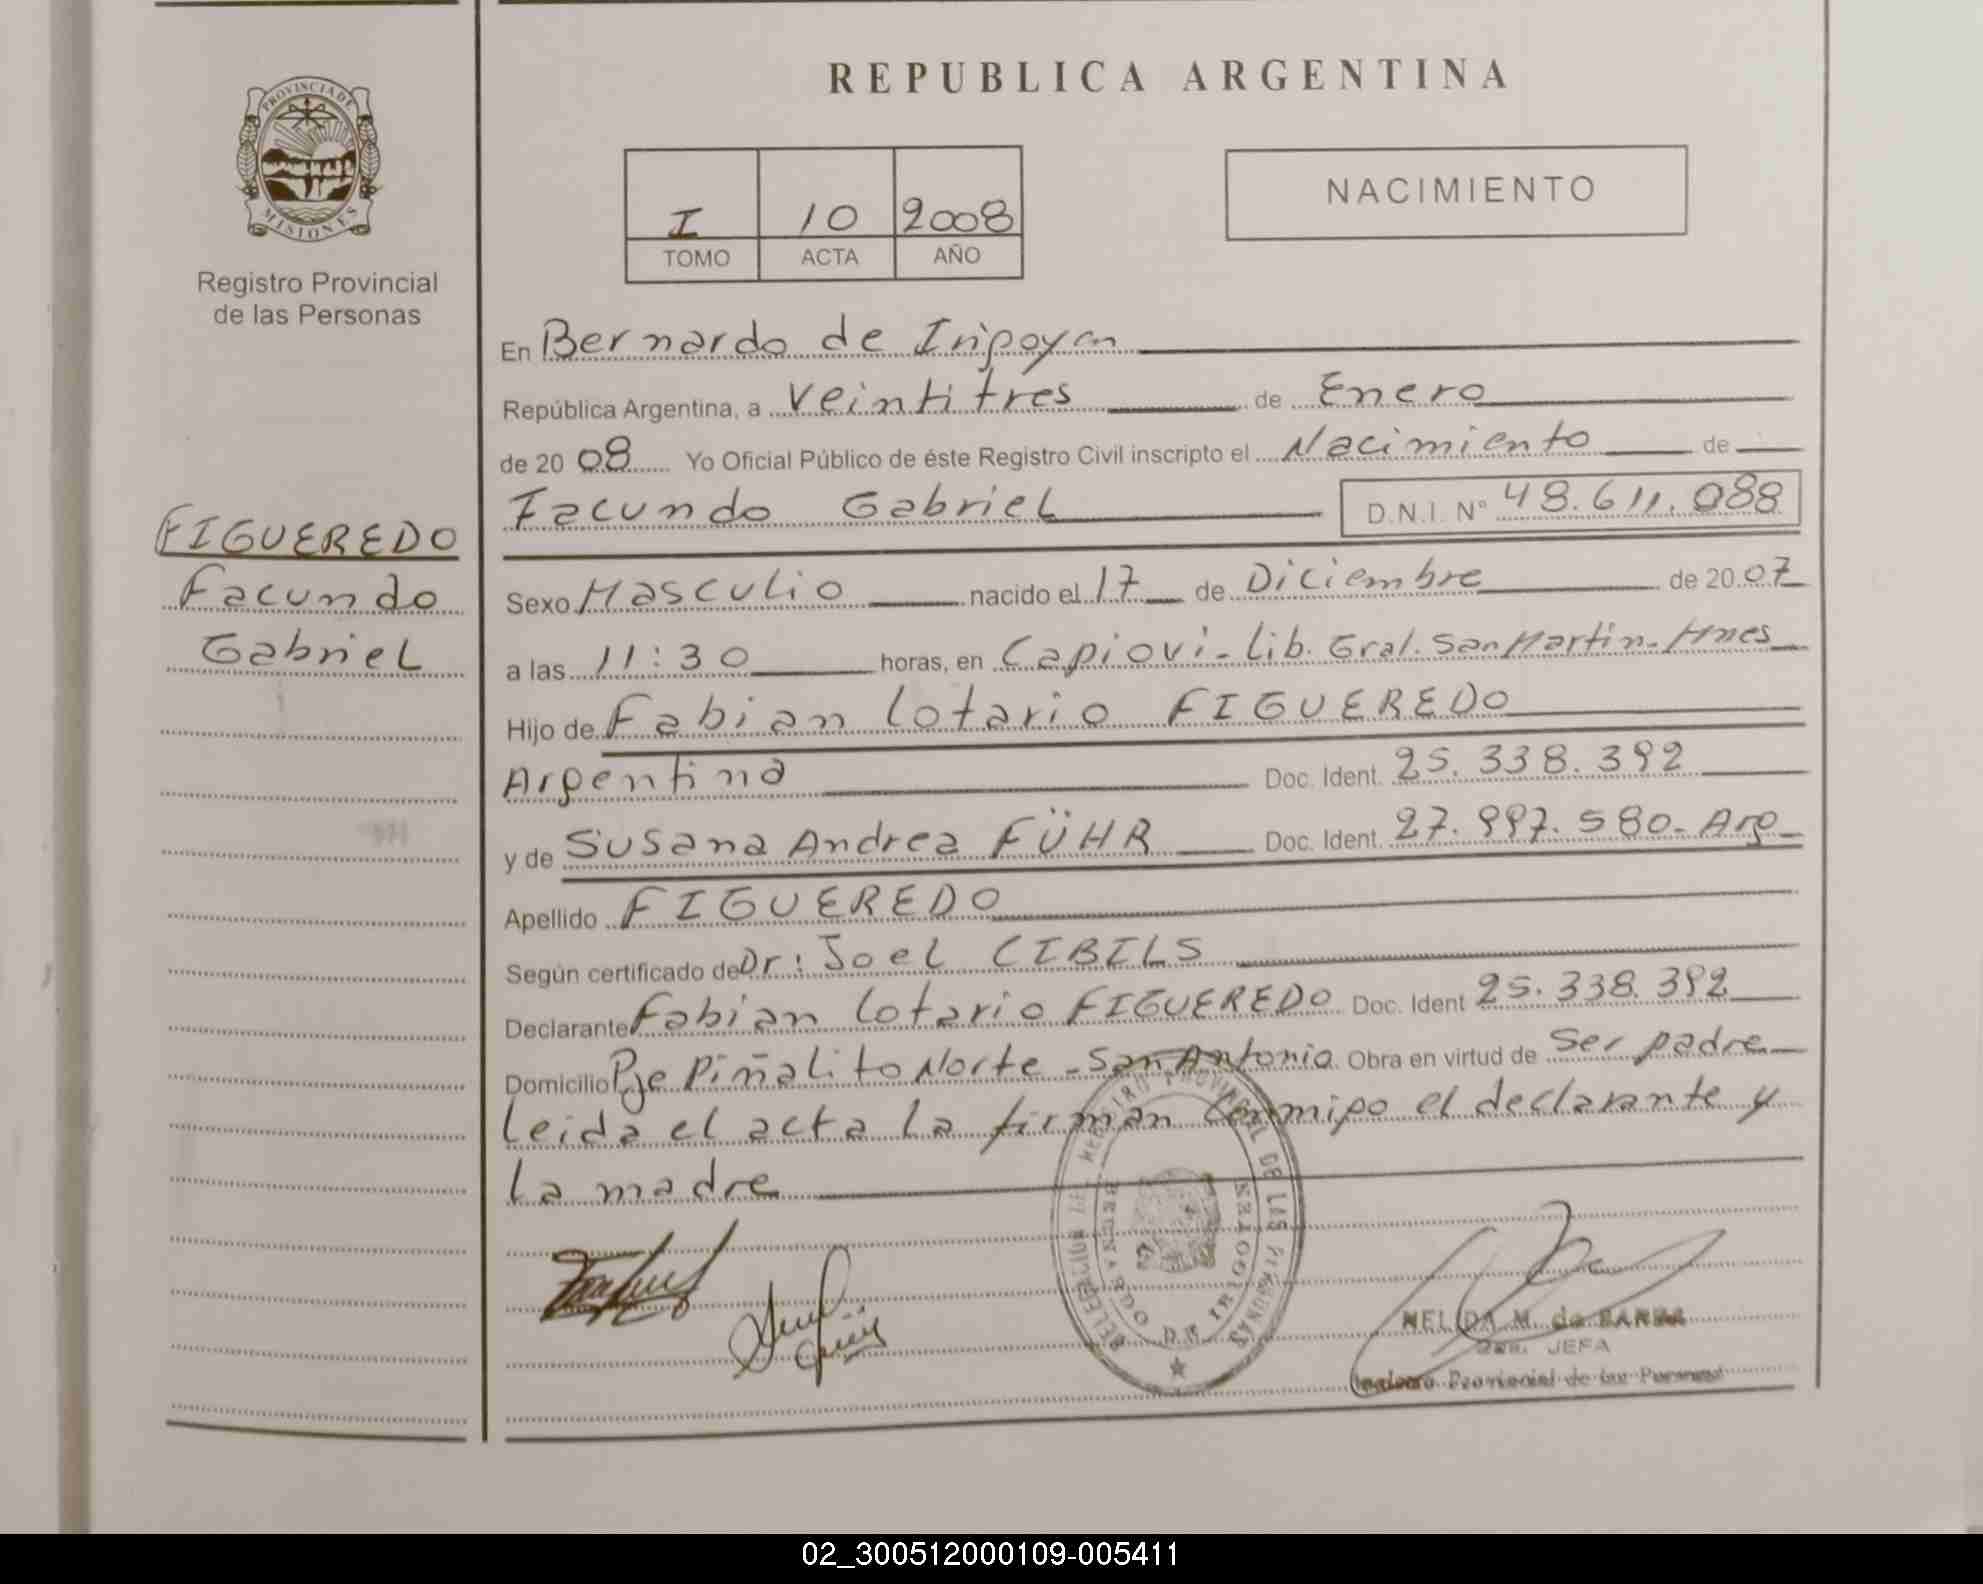 REPUBLICA ARGENTINA
PROVINCIA DE MISIONES
Registro Provincial
de las Personas
I 10 2008
TOMO ACTA AÑO
NACIMIENTO
FIGUEREDO
Facundo
Gabriel
En Bernardo de Irigoyen
República Argentina, a veintitres de Enero
de 20 08 Yo Oficial Público de éste Registro Civil inscripto el Nacimiento de
Facundo Gabriel D.N.I. N° 48.611.088
Sexo Masculio nacido el 17 de Diciembre de 20 07
a las 11:30 horas, en Capiovi - Lib. Gral. San Martin - Mnes
Hijo de Fabian Lotario FIGUEREDO
Argentina Doc. Ident. 25.338.392
y de Susana Andrea FÜHR Doc. Ident. 27.997.580 - Arg
Apellido FIGUEREDO
Según certificado de Dr: Joel CIBILS
Declarante Fabian Lotario FIGUEREDO Doc. Ident 25.338.392
Domicilio Pje Piñalito Norte - San Antonio Obra en virtud de Ser padre
Leida el acta la firman conmigo el declarante y
la madre
DELEGACION DEL REGISTRO PROVINCIAL DE LAS PERSONAS
BERNARDO DE IRIGOYEN
NELIDA M. de
JEFA
Registro Provincial de las Personas
02_300512000109-005411